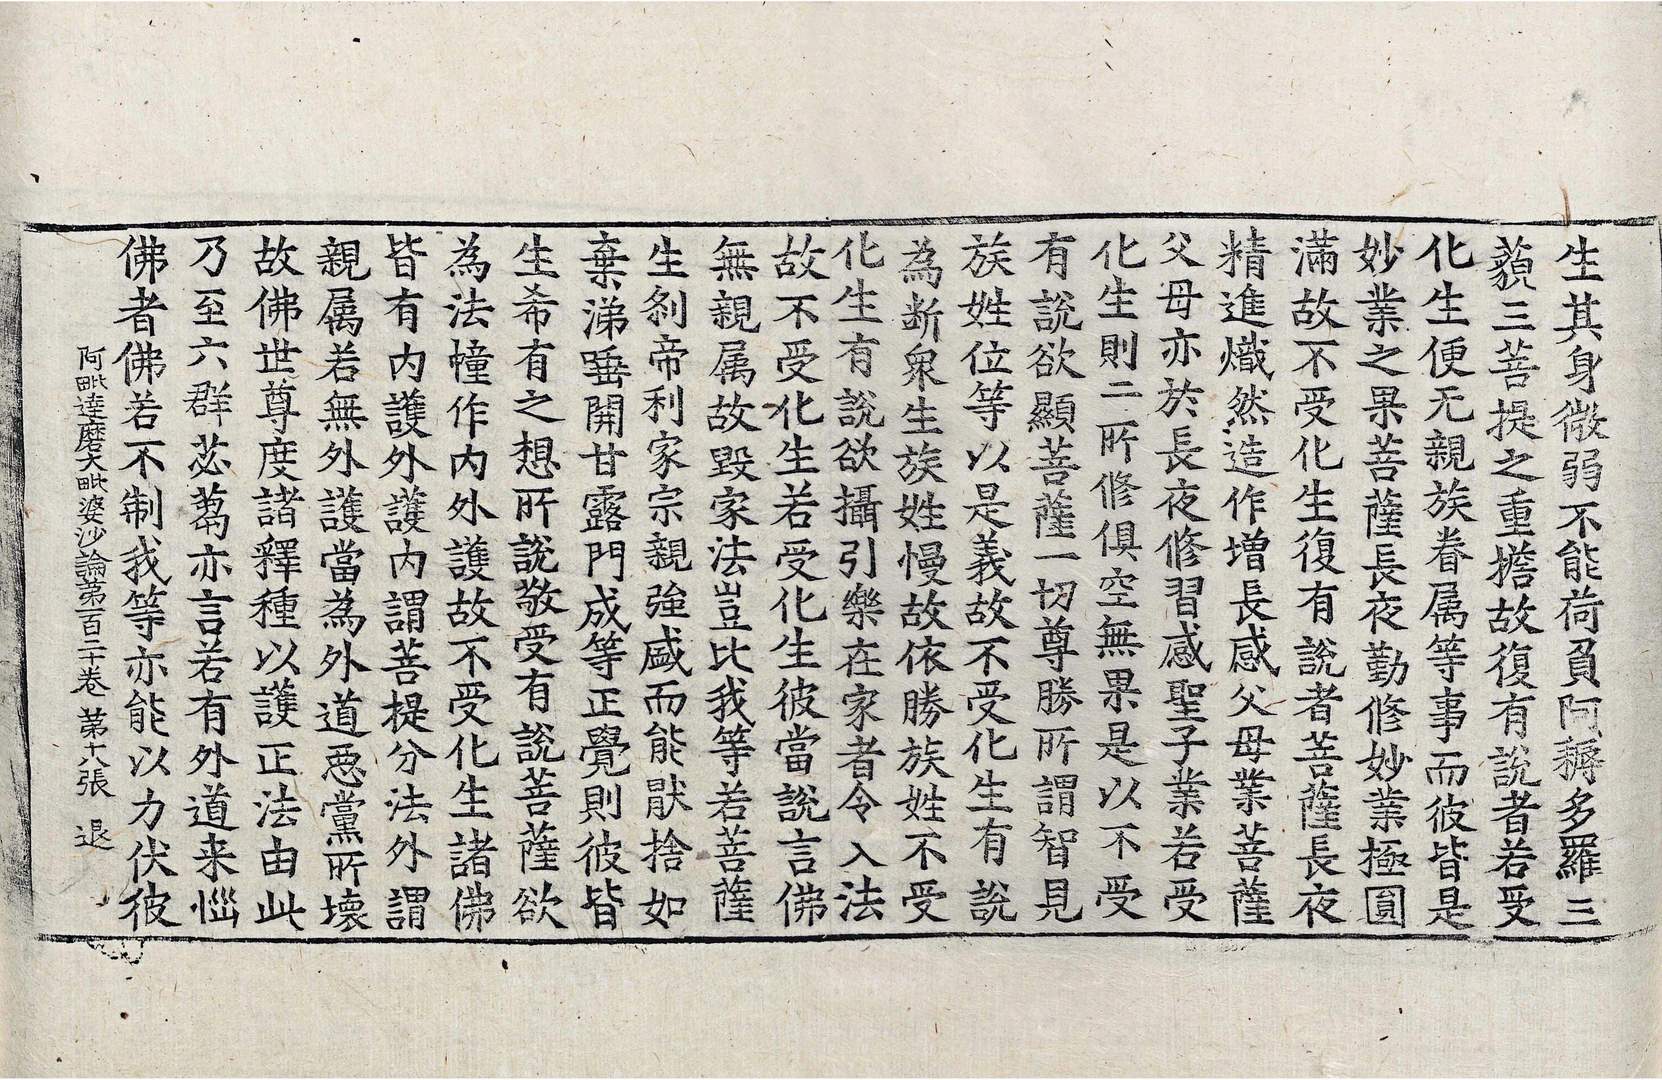 生其身微弱不能荷負阿耨多羅三
藐三菩提之重擔故復有說者若受
化生便无親族眷属等事而彼皆是
妙業之果菩薩長夜勤修妙業極圓
滿故不受化生復有說者菩薩長夜
精進熾然造作增長感父母業菩薩
父母亦於長夜修習感聖子業若受
化生則二所修俱空無果是以不受
有說欲顯菩薩一切尊勝所謂智見
族姓位等以是義故不受化生有說
為断眾生族姓慢故依勝族姓不受
化生有說欲攝引樂在家者令入法
故不受化生若受化生彼當說言佛
無親属故毀家法豈比我等若菩薩
生剎帝利家宗親強盛而能猒捨如
棄涕唾開甘露門成等正覺則彼皆
生希有之想所說敬受有說菩薩欲
為法幢作内外護故不受化生諸佛
皆有内護外護内謂菩提分法外謂
親属若無外護當為外道惡黨所壞
故佛世尊度諸釋種以護正法由此
乃至六群苾蒭亦言若有外道来惱
佛者佛若不制我等亦能以力伏彼
阿毗達磨大毗婆沙論第百二十卷 第十八張 退